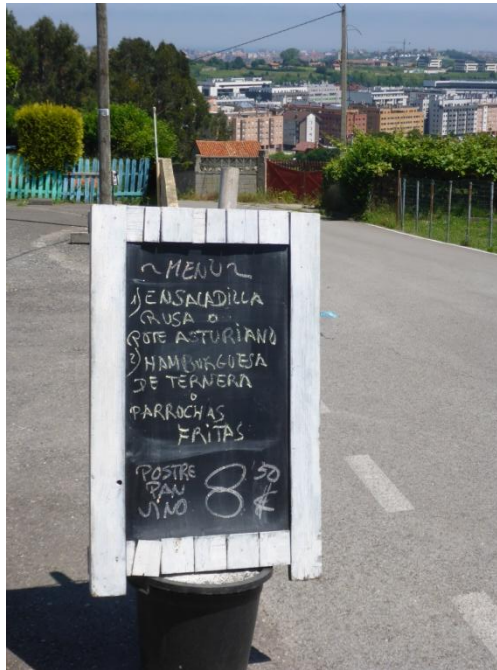 ~ MENU ~
1) ENSALADILLA
RUSA O
POTE ASTURIANO
2) HAMBURGUESA
DE TERNERA
O
PARROCHAS
FRITAS
POSTRE
PAN
VINO
8'50
€